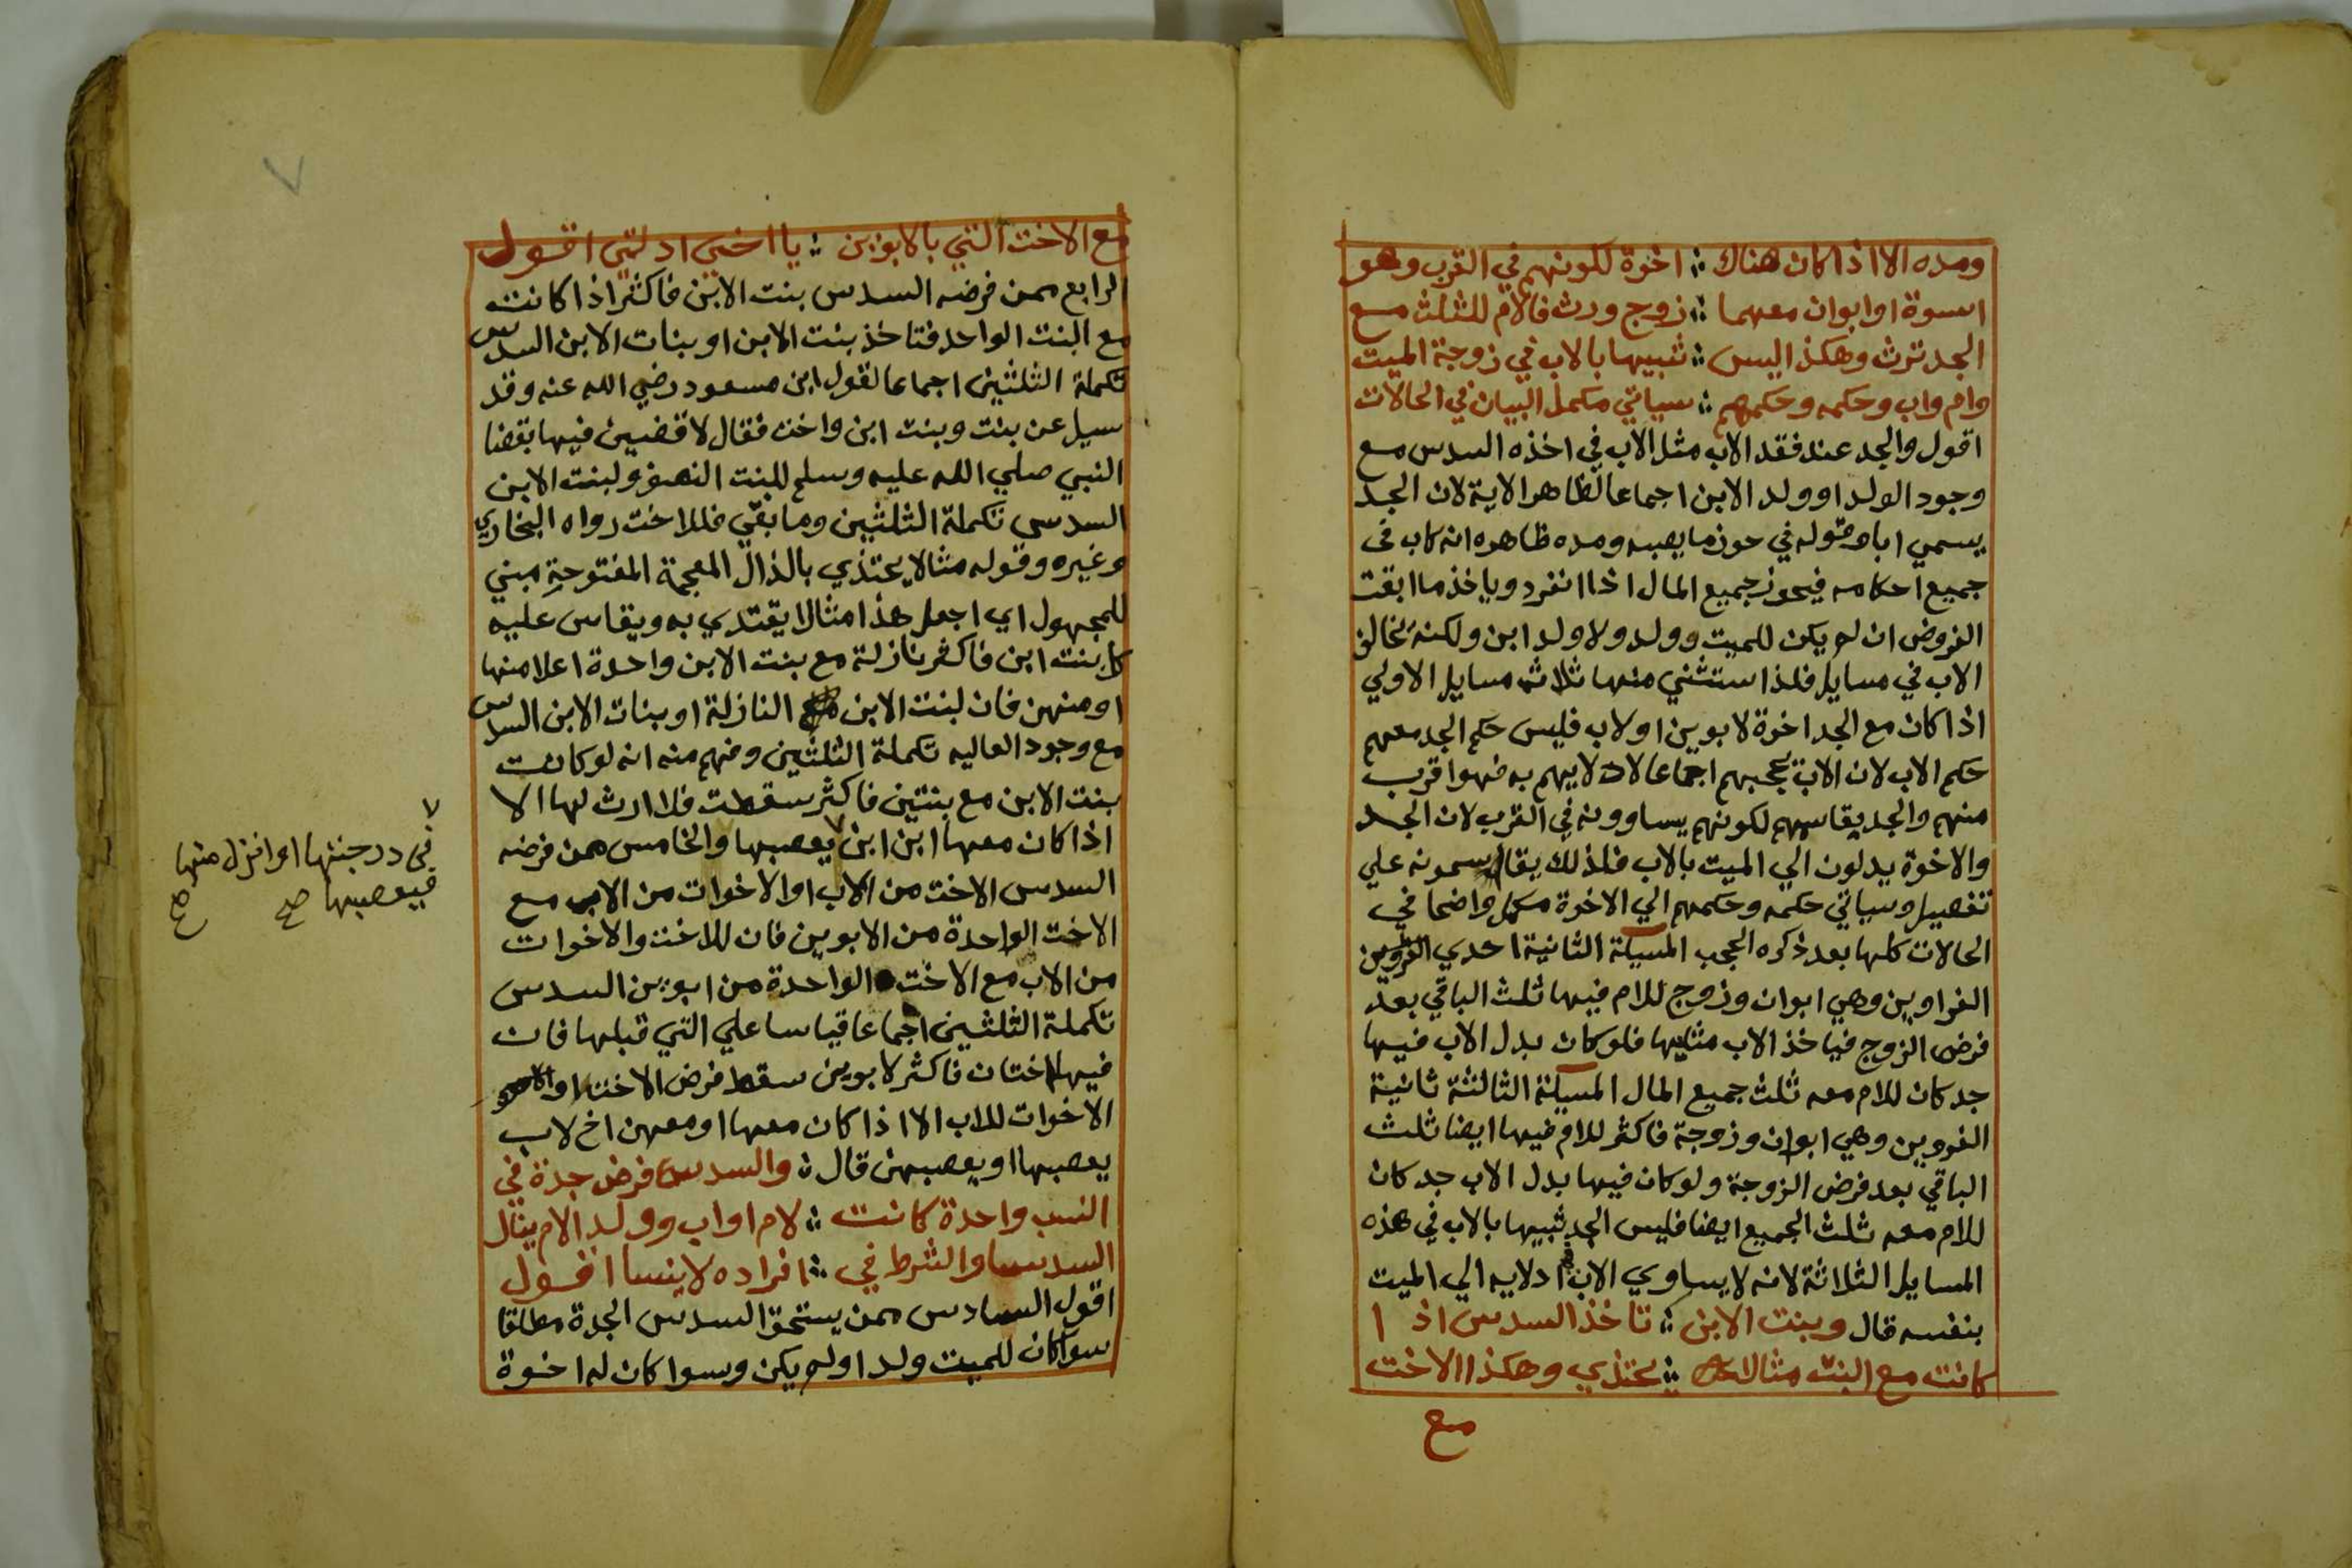 ومده الا اذا كان هناك ؛ اخوة لكونهم في القرب وهو
اسوة او ابوان معهما ؛ زوج ورث فالام للثلث مع
الجد ترث وهكذا ليس ؛ شبيها بالاب في زوجة الميت
وام واب وحكمه وحكمهم ؛ سياتي مكمل البيان في الحالات
اقول والجد عند فقد الاب مثل الاب في اخذه السدس مع
وجود الولد او ولد الابن اجماعا لظاهر الاية لان الجد
يسمي ابا وقوله في حوز ما يصبه ومده ظاهره انه كاب في
جميع احكامه فيحوز جميع المال اذا انفرد وياخذ ما ابقت
الفروض ان لم يكن للميت وولد ولا ولد ابن ولكنه يخالف
الاب في مسايل فلذا استثني منها ثلاث مسايل الاولي
اذا كان مع الجد اخوة لابوين او لاب فليس حكم الجد معهم
حكم الاب لان الاب يحجبهم اجماعا لادلايهم به فهو اقرب
منهم والجد يقاسمهم لكونهم يساوونه في القرب لان الجد
والاخوة يدلون الي الميت بالاب فلذلك يقاسمونه علي
تفصيل وسياتي حكمه وحكمهم الي الاخوة مكمل واضحا في
الحالات كلها بعد ذكره الحجب المسيلة الثانية احدي
الغراوين وهي ابوان وزوج للام فيها ثلث الباقي بعد
فرض الزوج فياخذ الاب مثليها فلو كان بدل الاب فيها
جد كان للام معه ثلث جميع المال المسيلة الثالثة ثانية
الغروين وهي ابوان وزوجة فاكثر للام فيها ايضا ثلث
الباقي بعد فرض الزوجة ولو كان فيها بدل الاب جد كان
للام معه ثلث الجميع ايضا فليس الجد شبيها بالاب في هذه
المسايل الثلاثة لانه لا يساوي الاب في ادلايه الي الميت
بنفسه قال وبنت الابن ؛ تاخذ السدس اذ ا
كانت مع البنت مثالا ؛ يحتذي وهكذا الاخت
مع
مع الاخت التي بالابوين ؛ يا اخي ادلتي اقول
الرابع ممن فرضه السدس بنت الابن فاكثر اذا كانت
مع البنت الواحد فتاخذ بنت الابن او بنات الابن السدس
تكملة الثلثين اجماعا لقول ابن مسعود رضي الله عنه وقد
سيل عن بنت وبنت ابن واخت فقال لاقضيين فيها بقضا
النبي صلي الله عليه وسلم للبنت النصف ولبنت الابن
السدس تكملة الثلثين وما بقي فللاخت رواه البخاري
وغيره وقوله مثالا يحتذي بالذال المعجمة المفتوحة مبني
للمجهول اي اجعل هذا مثالا يقتدي به ويقاس عليه
كل بنت ابن فاكثر نازلة مع بنت الابن واحدة اعلا منها
او منهن فان لبنت الابن النازلة او بنات الابن السدس
مع وجود العاليه تكملة الثلثين وفهم منه انه لو كانت
بنت الابن مع بنتين فاكثر سقطت فلا ارث لها الا
اذا كان معها ابن ابن يعصبها والخامس ممن فرضه
السدس الاخت من الاب او الاخوات من الاب مع
الاخت الواحدة من الابوين فان للاخت والاخوات
من الاب مع الاخت الواحدة من ابوين السدس
تكملة الثلثين اجماعا قياسا علي التي قبلها فان
فيها اختان فاكثر لابوين سقط فرض الاخت او
الاخوات للاب الا اذا كان معها او معهن اخ لاب
يعصبها او يعصبهن قال ؛ والسدس فرض جدة في
النسب واحدة كانت ؛ لام او اب وولد الام ينال
السدسا والشرط في ؛ افراده لا ينسا اقول
اقول السادس ممن يستحق السدس الجدة مطلقا
سوا كان للميت ولد اولم يكن وسوا كان له اخوة
٧
في درجتها او انزل منها
فيعصبها صح